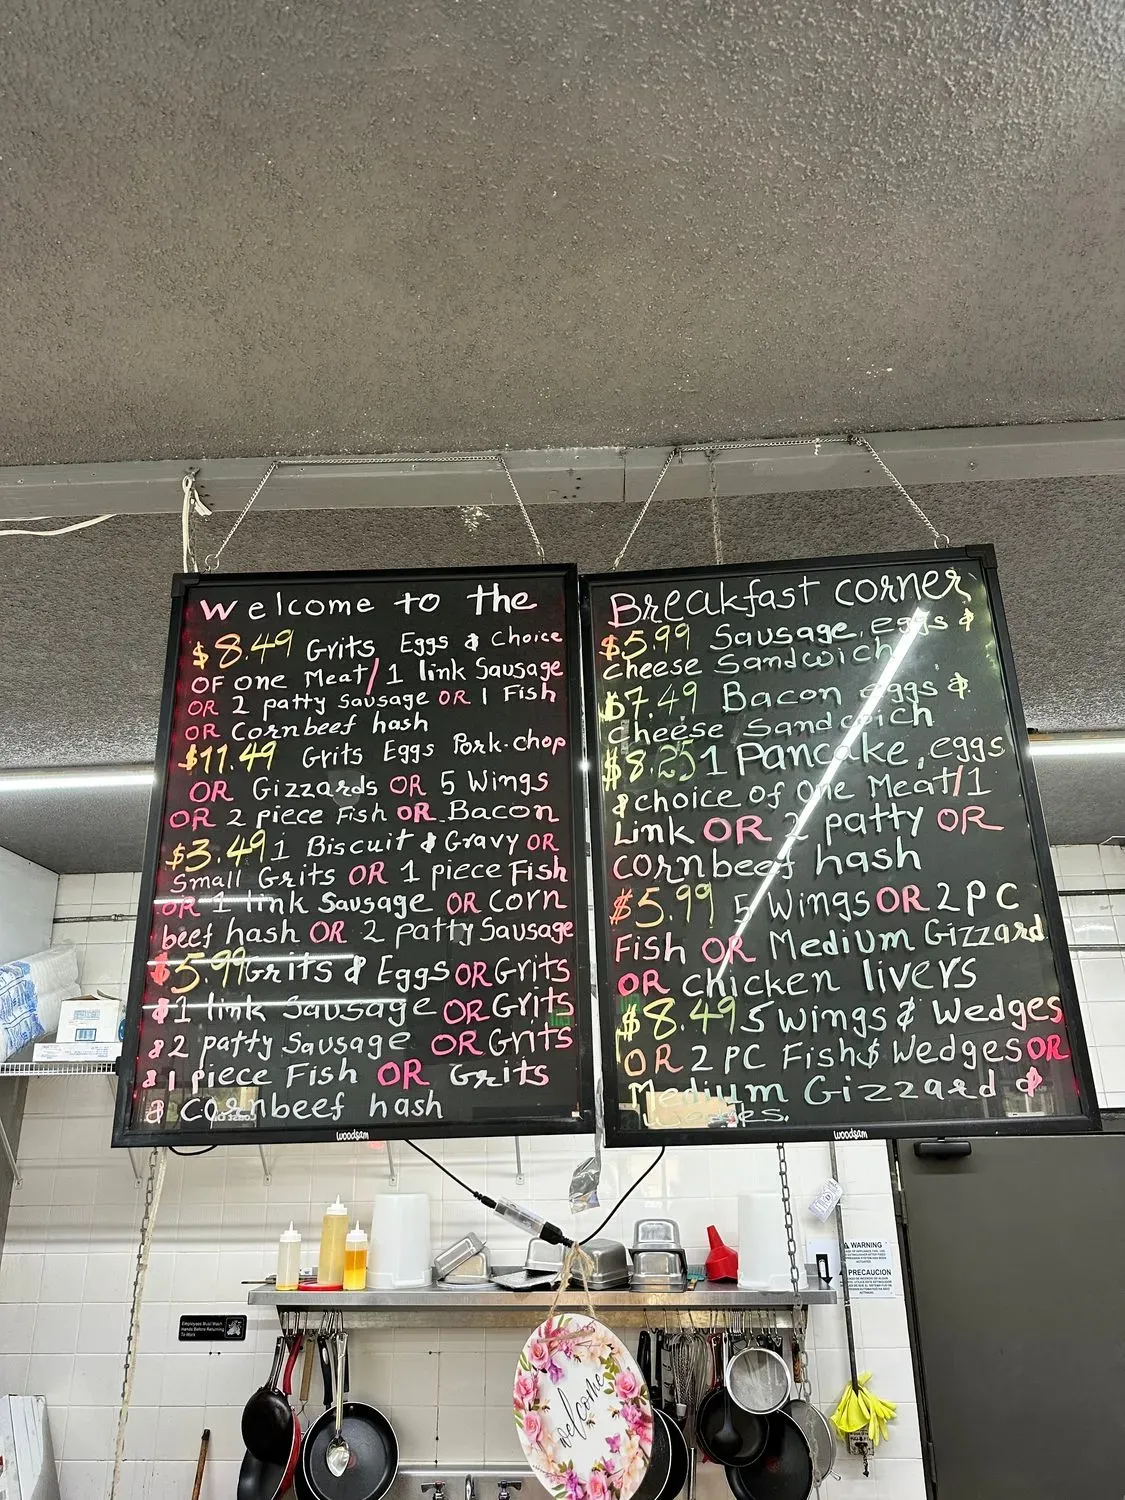 Welcome to the
$8.49 Grits Eggs & Choice
OF one Meat/1 link Sausage
OR 2 patty Sausage OR 1 Fish
OR Cornbeef hash
$11.49 Grits Eggs Pork-chop
OR Gizzards OR 5 Wings
OR 2 piece Fish OR Bacon
$3.49 1 Biscuit & Gravy OR
Small Grits OR 1 piece Fish
OR 1 link Sausage OR Corn
beef hash OR 2 patty Sausage
$5.99 Grits & Eggs OR Grits
& 1 link Sausage OR Grits
& 2 patty Sausage OR Grits
& 1 piece Fish OR Grits
& Cornbeef hash
woodsam
Breakfast corner
$5.99 Sausage, eggs &
Cheese Sandwich
$7.49 Bacon eggs &
Cheese Sandwich
$8.25 1 Pancake, eggs
& choice of One Meat/1
Link OR 2 patty OR
cornbeef hash
$5.99 5 Wings OR 2 PC
Fish OR Medium Gizzard
OR chicken livers
$8.49 5 Wings & Wedges
OR 2 PC Fish $ Wedges OR
Medium Gizzard &
woodsam
WARNING
PRECAUCION
Employees Must Wash
Hands Before Returning
To Work
welcome